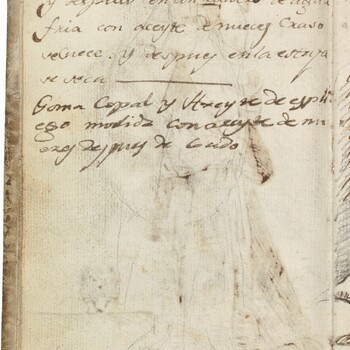 y despues en un de agua
fria con aceyte de nueces Craso
y despues en la estufa
se seca
Goma Copal y Azeyte de espli
ego molida con aceyte de nu
ezes despues de